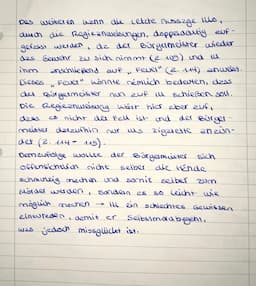 Des weiteren kann die letzte Aussage Ills,
durch die Regieanweisungen, doppeldeutig auf-
gefasst werden, da der Bürgermeister wieder
das Gewehr zu sich nimmt (z. 109) und ihm
anschließend auf „Feuer" (z. 114) anbietet.
Dieses „Feuer" könnte nämlich bedeuten, dass
der Bürgermeister nun auf ihn schießen soll.
Die Regieanweisung klärt hier aber auf,
dass es nicht der Fall ist und der Bürger-
meister daraufhin nur ills Zigarette anzün-
det (z. 114 - 115).
Demzufolge wollte der Bürgermeister sich
offensichtlich nicht selber die Hände
schmutzig machen und somit selber zum
Mörder werden, sondern es so leicht wie
möglich machen → Ill ein schlechtes Gewissen
einzureden, damit er Selbstmord begeht,
was jedoch missglückt ist.